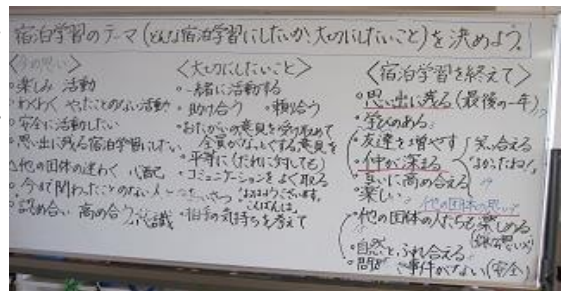 宿泊学習のテーマ(どんな宿泊学習にしたいか、大切にしたいこと)を決めよう。
<今の思い>
○楽しみ 活動
○わくわく やったことのない活動
○安全に活動したい
○思い出に残る宿泊学習にしたい
△他の団体の迷わく 心配
○今まで関わったことのない人
○認め合い 高め合う 意識
<大切にしたいこと>
○一緒に活動する
○助け合う ○頼り合う
○おたがいの意見を受け取めて
全員がなっとくする意見を
○平等に(だれに対しても)
○コミュニケーションをよく取る
あいさつ おはようございます。
こんばんは。
○相手の気持ちを考えて
<宿泊学習を終えて>
○思い出に残る(最後の一年)
○学びのある
○友達を増やす 笑い合える
○仲が深まる よかったね!
○互いに高め合える
○楽しい
他の団体の思い
○他の団体の人たちも楽しめる
○自然とふれ合える
○問題 事件がない(安全)